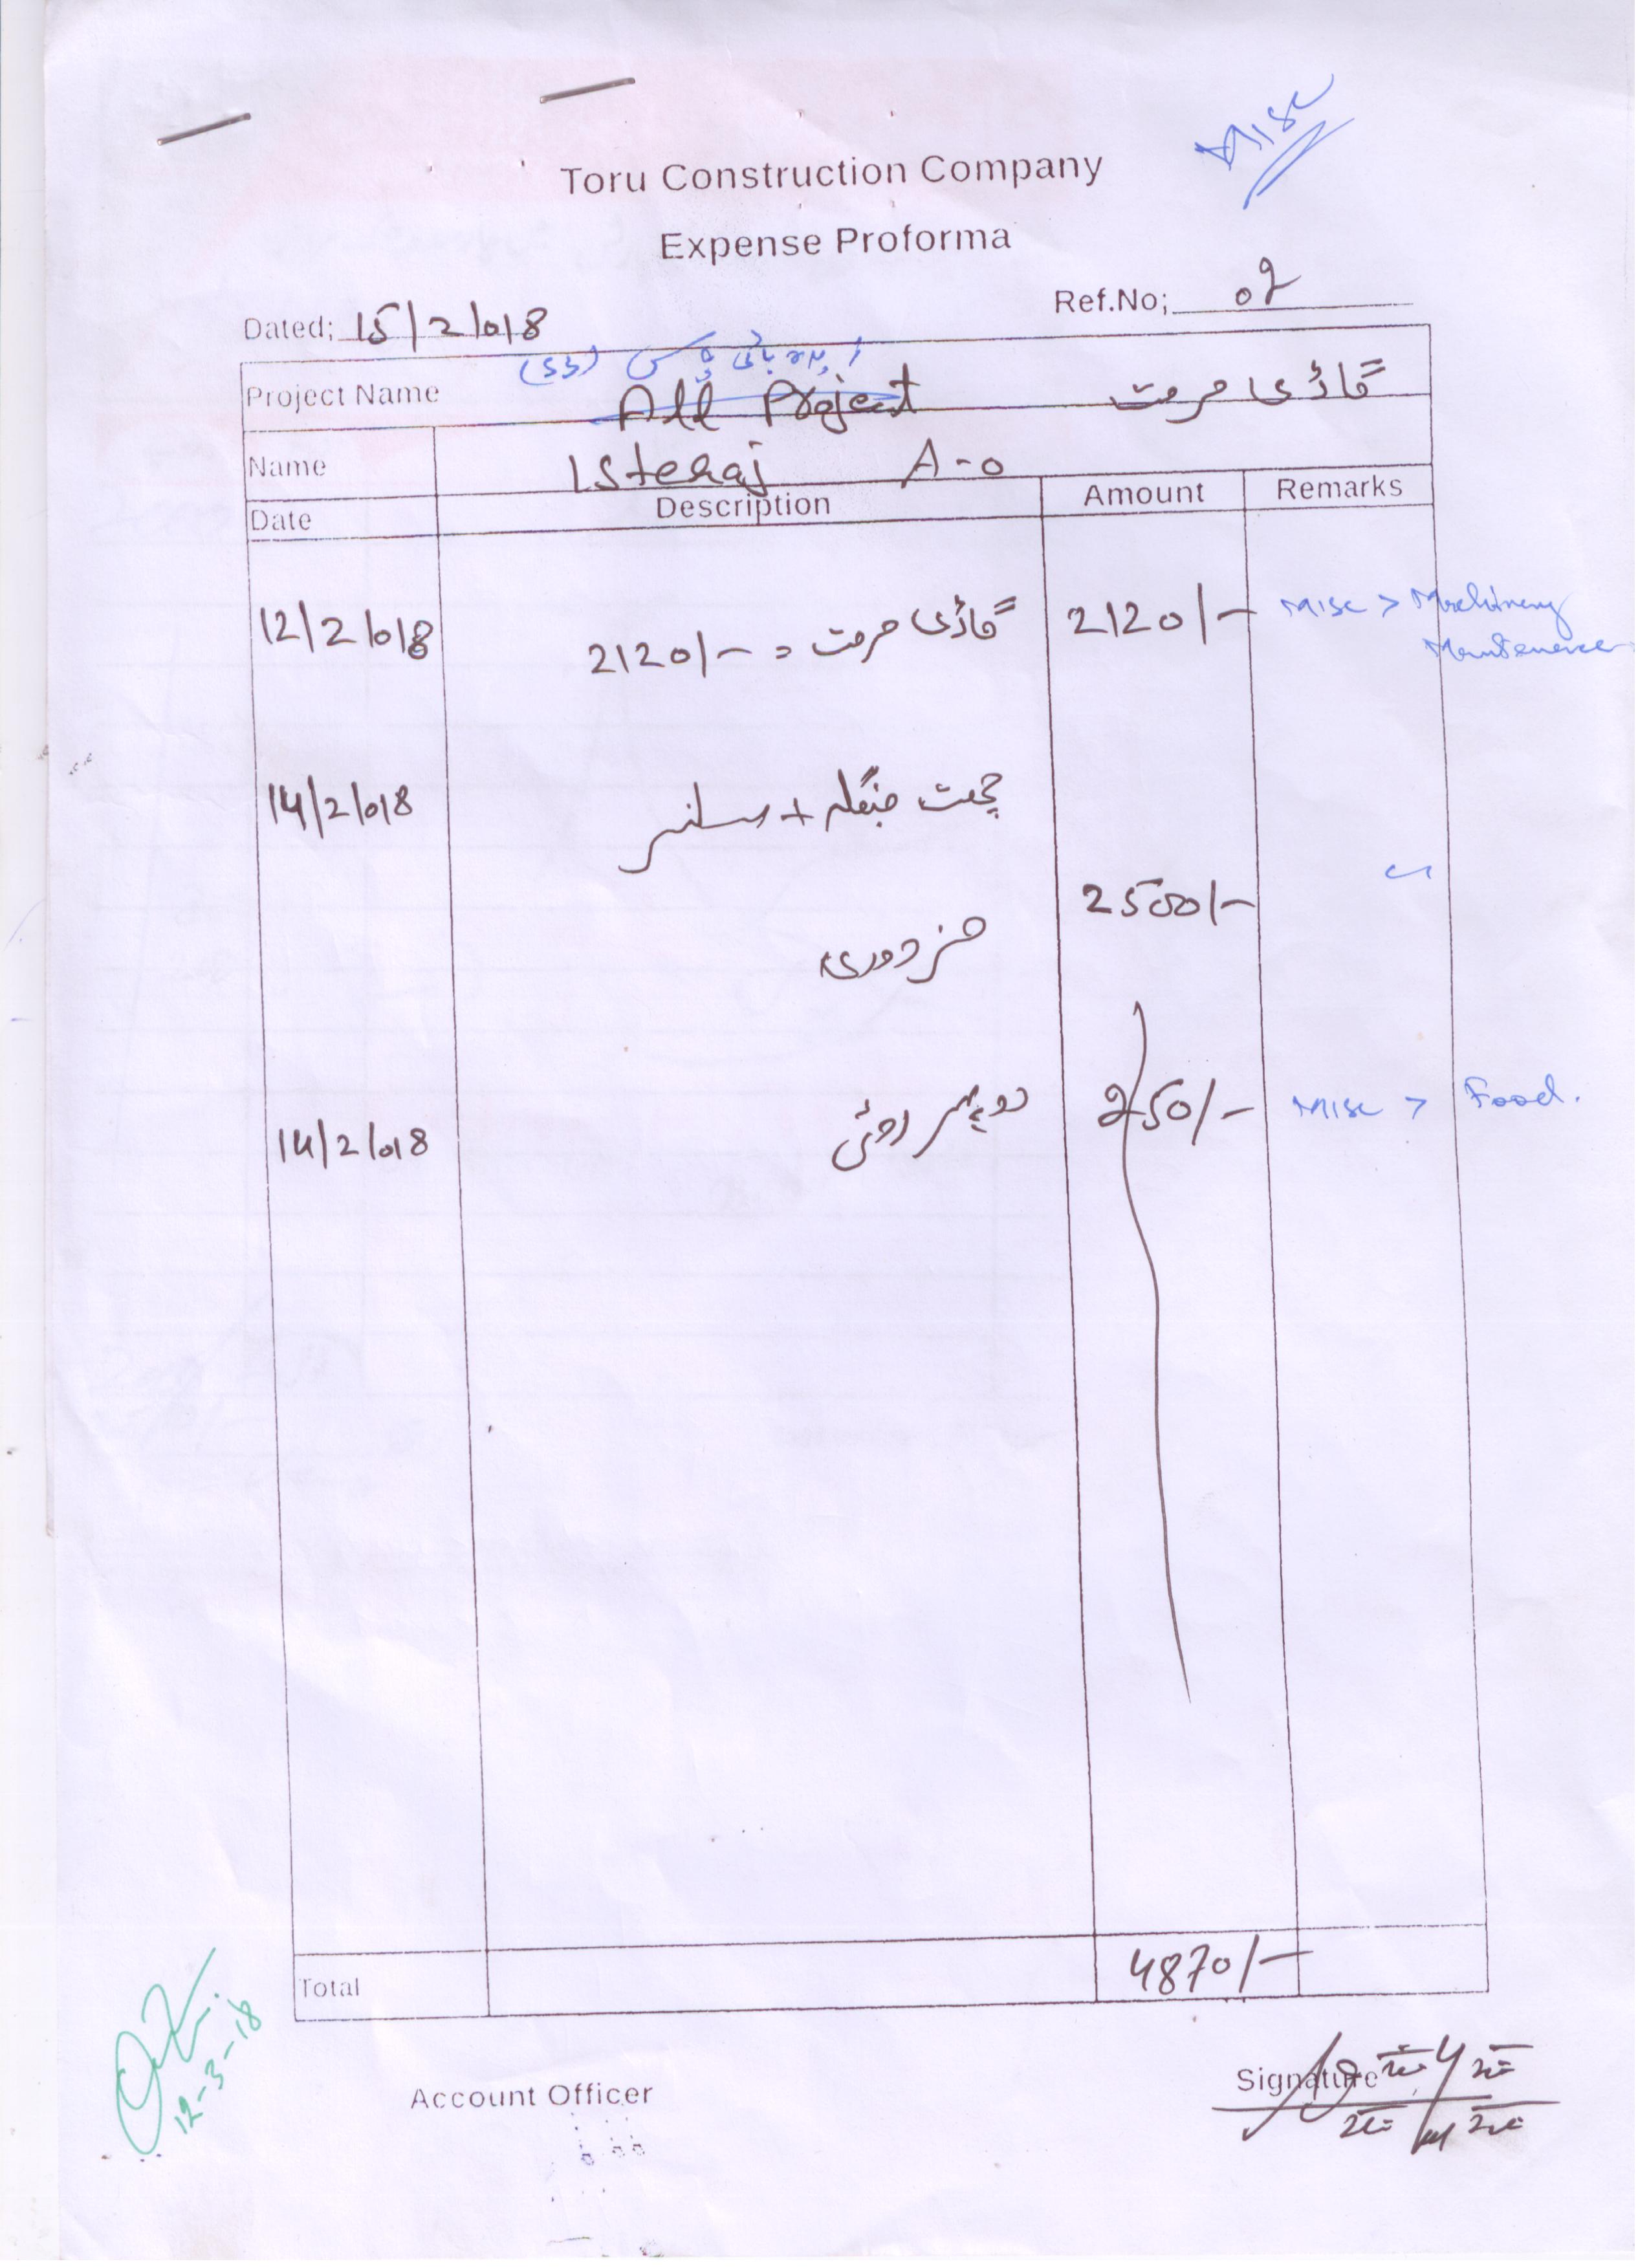 Misc
Toru Construction Company
Expense Proforma
Ref.No; 02
Dated; 15/2/018
Project Name All Project گاڑی مرمت
Name Isteraj A-o
Date Description Amount Remarks
12/2/018 گاڑی مرمت = 2120/- 2120/- Misc > Machinery
Maintenance
14/2/018 چھت جنگلہ + سلنسر
2500/-
مزدوری
14/2/018 دوپہر روٹی 250/- Misc > Food.
Total 4870/-
12-3-18
Account Officer Signature